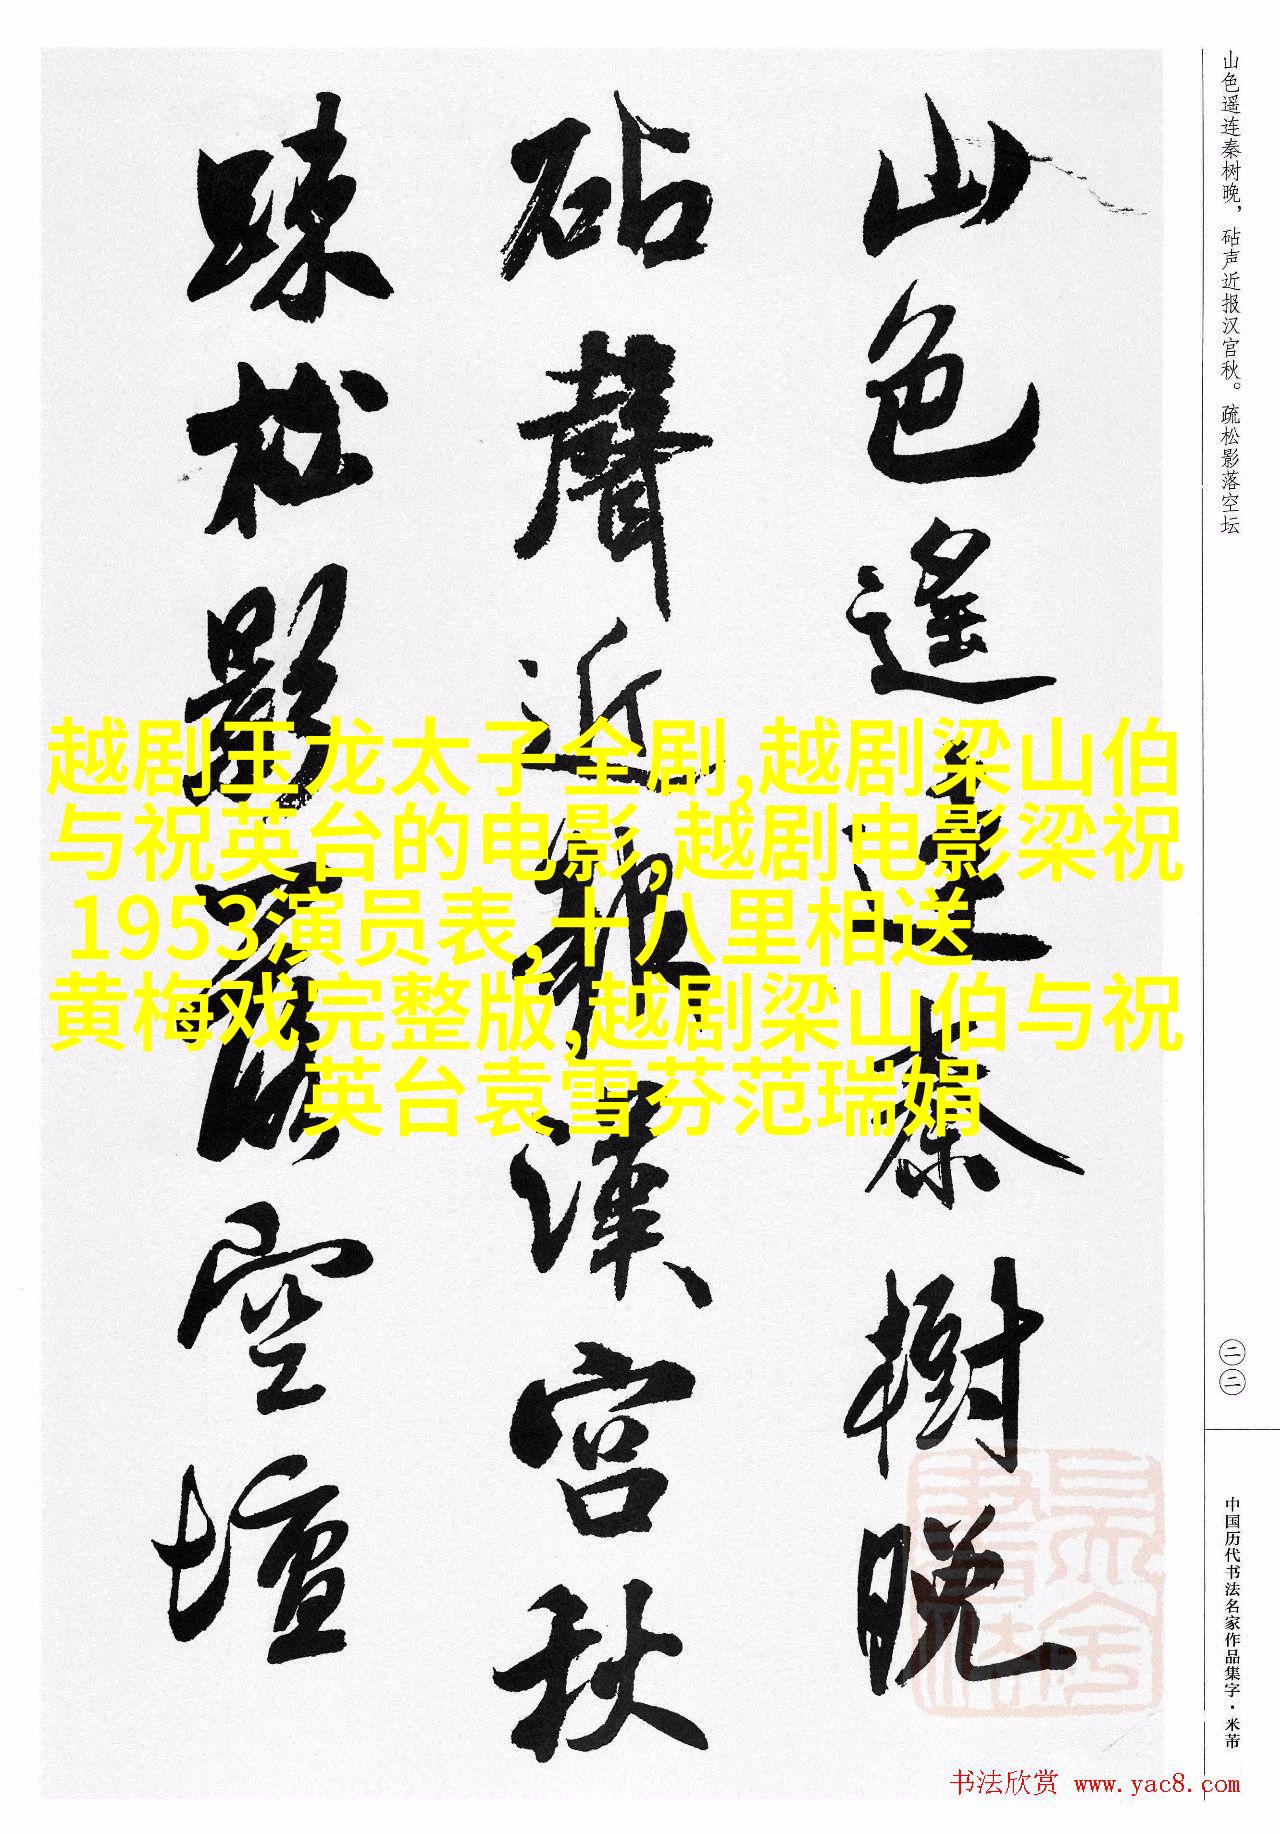 山色遥连秦树晚，砧声近报汉宫秋。疏松影落空坛
山色遙連秦樹晚
砧聲近報漢宮秋
踈松影落空壇
越剧玉龙太子全剧,越剧梁山伯
与祝英台的电影,越剧电影梁祝
1953演员表,十八里相送
黄梅戏完整版,越剧梁山伯与祝
英台袁雪芬范瑞娟
二二
中国历代书法名家作品集字·米芾
书法欣赏 www.yac8.com